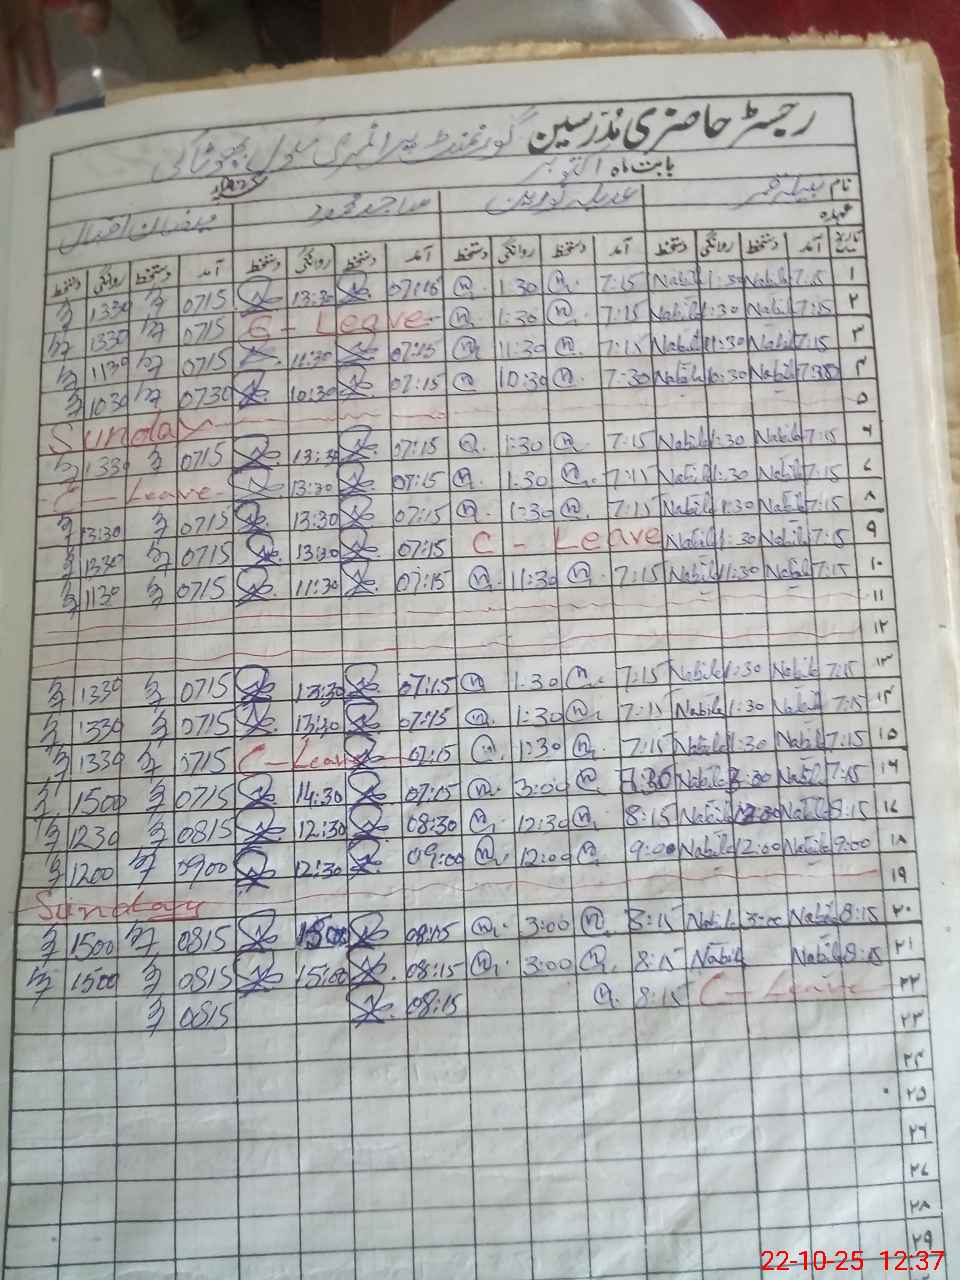 رجسٹر حاضری مدرسین گورنمنٹ پرائمری سکول
بابت ماہ اکتوبر
نام نبیلہ قمر ماجد محمود فیضان اقبال
عہدہ
تاریخ آمد دستخط روانگی دستخط آمد دستخط روانگی دستخط آمد دستخط روانگی دستخط آمد دستخط روانگی دستخط
۱ 7:15 Nabila 1:30 Nabila 7:15 1:30 07:15 13:30 0715 1330
۲ 7:15 Nabila 1:30 Nabila 7:15 1:30 C - Leave 0715 1330
۳ 7:15 Nabila 11:30 Nabila 7:15 11:30 07:15 11:30 0715 1130
۴ 7:30 Nabila 10:30 Nabila 7:30 10:30 07:15 10:30 0730 1030
۵ Sunday
۶ 7:15 Nabila 1:30 Nabila 7:15 1:30 07:15 13:30 0715 1330
۷ 7:15 Nabila 1:30 Nabila 7:15 1:30 07:15 13:30 C - Leave
۸ 7:15 Nabila 1:30 Nabila 7:15 1:30 07:15 13:30 0715 13:30
۹ 7:15 Nabila 1:30 Nabila C - Leave 07:15 13:30 0715 1330
۱۰ 7:15 Nabila 11:30 Nabila 7:15 11:30 07:15 11:30 0715 1130
۱۱
۱۲
۱۳ 7:15 Nabila 1:30 Nabila 7:15 1:30 07:15 13:30 0715 1330
۱۴ 7:15 Nabila 1:30 Nabila 7:15 1:30 07:15 13:30 0715 1330
۱۵ 7:15 Nabila 1:30 Nabila 7:15 1:30 07:15 C - Leave 0715 1330
۱۶ 7:15 Nabila 3:30 Nabila 7:30 3:00 07:15 14:30 0715 1500
۱۷ 8:15 Nabila 12:30 Nabila 8:15 12:30 08:30 12:30 0815 1230
۱۸ 9:00 Nabila 12:00 Nabila 9:00 12:00 09:00 12:30 0900 1200
۱۹ Sunday
۲۰ 8:15 Nabila 3:00 Nabila 8:15 3:00 08:15 1500 0815 1500
۲۱ 8:15 Nabila Nabila 8:15 3:00 08:15 15:00 0815 1500
۲۲ C - Leave 8:15 08:15 0815
۲۳
۲۴
۲۵
۲۶
۲۷
۲۸
۲۹
22-10-25 12:37